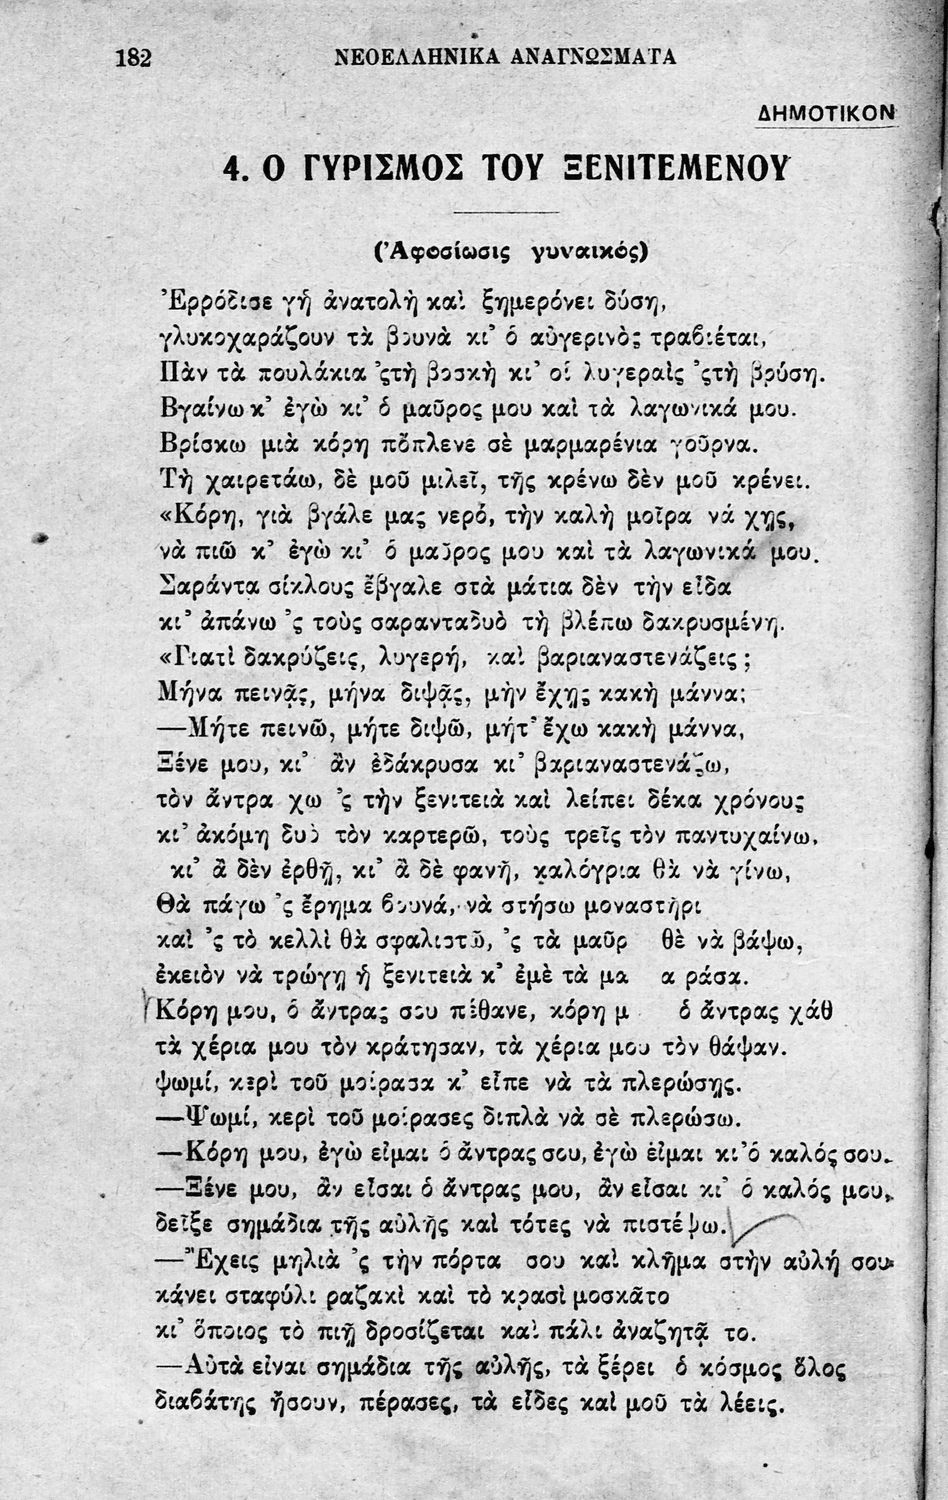 182 ΝΕΟΕΛΛΗΝΙΚΑ ΑΝΑΓΝΩΣΜΑΤΑ
ΔΗΜΟΤΙΚΟΝ
4. Ο ΓΥΡΙΣΜΟΣ ΤΟΥ ΞΕΝΙΤΕΜΕΝΟΥ
(Ἀφοσίωσις γυναικός)
Ἐρρόδισε γἡ ἀνατολὴ καὶ ξημερόνει δύση,
γλυκοχαράζουν τὰ βουνὰ κι’ ὁ αὐγερινὸς τραβιέται,
Πὰν τὰ πουλάκια ’ςτὴ βοσκὴ κι’ οἱ λυγεραὶς ’ςτὴ βρύση.
Βγαίνω κ’ ἐγὼ κι’ ὁ μαῦρος μου καὶ τὰ λαγωνικά μου.
Βρίσκω μιὰ κόρη πὄπλενε σὲ μαρμαρένια γοῦρνα.
Τὴ χαιρετάω, δὲ μοῦ μιλεῖ, τῆς κρένω δὲν μοῦ κρένει.
«Κόρη, γιὰ βγάλε μας νερό, τὴν καλὴ μοῖρα νά χῃς,
νὰ πιῶ κ’ ἐγὼ κι’ ὁ μαῦρος μου καὶ τὰ λαγωνικά μου.
Σαράντα σίκλους ἔβγαλε στὰ μάτια δὲν τὴν εἶδα
κι’ ἀπάνω ’ς τοὺς σαρανταδυὸ τὴ βλέπω δακρυσμένη.
«Γιατὶ δακρύζεις, λυγερή, καὶ βαριαναστενάζεις;
Μήνα πεινᾷς, μήνα διψᾷς, μὴν ἔχῃς κακὴ μάννα;
—Μήτε πεινῶ, μήτε διψῶ, μήτ’ ἔχω κακὴ μάννα,
Ξένε μου, κι’ ἂν ἐδάκρυσα κι’ βαριαναστενάζω,
τὸν ἄντρα χω ’ς τὴν ξενιτειὰ καὶ λείπει δέκα χρόνους
κι’ ἀκόμη δυὸ τὸν καρτερῶ, τοὺς τρεῖς τὸν παντυχαίνω,
κι’ ἂ δὲν ἐρθῇ, κι’ ἂ δὲ φανῇ, καλόγρια θὰ νὰ γίνω,
Θὰ πάγω ’ς ἔρημα βουνά, νὰ στήσω μοναστήρι
καὶ ’ς τὸ κελλὶ θὰ σφαλιστῶ, ’ς τὰ μαῦρ θὲ νὰ βάψω,
ἐκειὸν νὰ τρώγῃ ἡ ξενιτειὰ κ’ ἐμὲ τὰ μα α ράσα.
Κόρη μου, ὁ ἄντρας σου πέθανε, κόρη μ ὁ ἄντρας χάθ
τὰ χέρια μου τὸν κράτησαν, τὰ χέρια μου τὸν θάψαν.
ψωμί, κερὶ τοῦ μοίρασα κ’ εἶπε νὰ τὰ πλερώσῃς.
—Ψωμί, κερὶ τοῦ μοίρασες διπλὰ νὰ σὲ πλερώσω.
—Κόρη μου, ἐγὼ εἶμαι ὁ ἄντρας σου, ἐγὼ εἶμαι κι’ ὁ καλός σου.
—Ξένε μου, ἂν εἶσαι ὁ ἄντρας μου, ἂν εἶσαι κι’ ὁ καλός μου,
δεῖξε σημάδια τῆς αὐλῆς καὶ τότες νὰ πιστέψω.
—Ἔχεις μηλιὰ ’ς τὴν πόρτα σου καὶ κλῆμα στὴν αὐλή σου
κάνει σταφύλι ραζακὶ καὶ τὸ κρασὶ μοσκᾶτο
κι’ ὅποιος τὸ πιῇ δροσίζεται καὶ πάλι ἀναζητᾷ το.
—Αὐτὰ εἶναι σημάδια τῆς αὐλῆς, τὰ ξέρει ὁ κόσμος ὅλος
διαβάτης ἤσουν, πέρασες, τὰ εἶδες καὶ μοῦ τὰ λέεις.